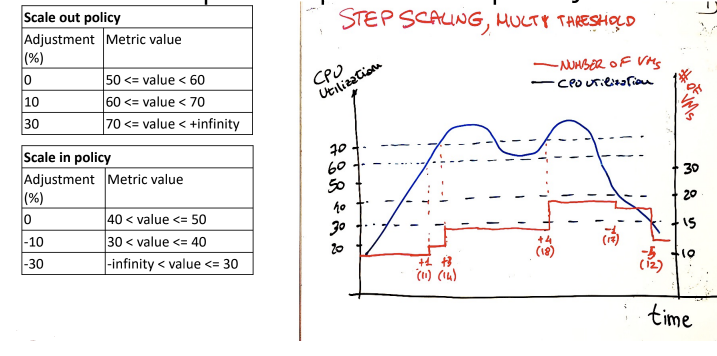 Scale out policy
Adjustment (%) Metric value
0 50 <= value < 60
10 60 <= value < 70
30 70 <= value < +infinity
Scale in policy
Adjustment (%) Metric value
0 40 < value <= 50
-10 30 < value <= 40
-30 -infinity < value <= 30
STEP SCALING, MULTY THRESHOLD
NUMBER OF VMs
CPU UTILIZATION
CPU
UTILIZATION
# OF VMs
70
60
50
40
30
20
30
20
15
10
+1
(11)
+3
(14)
+4
(18)
-1
(17)
-5
(12)
time